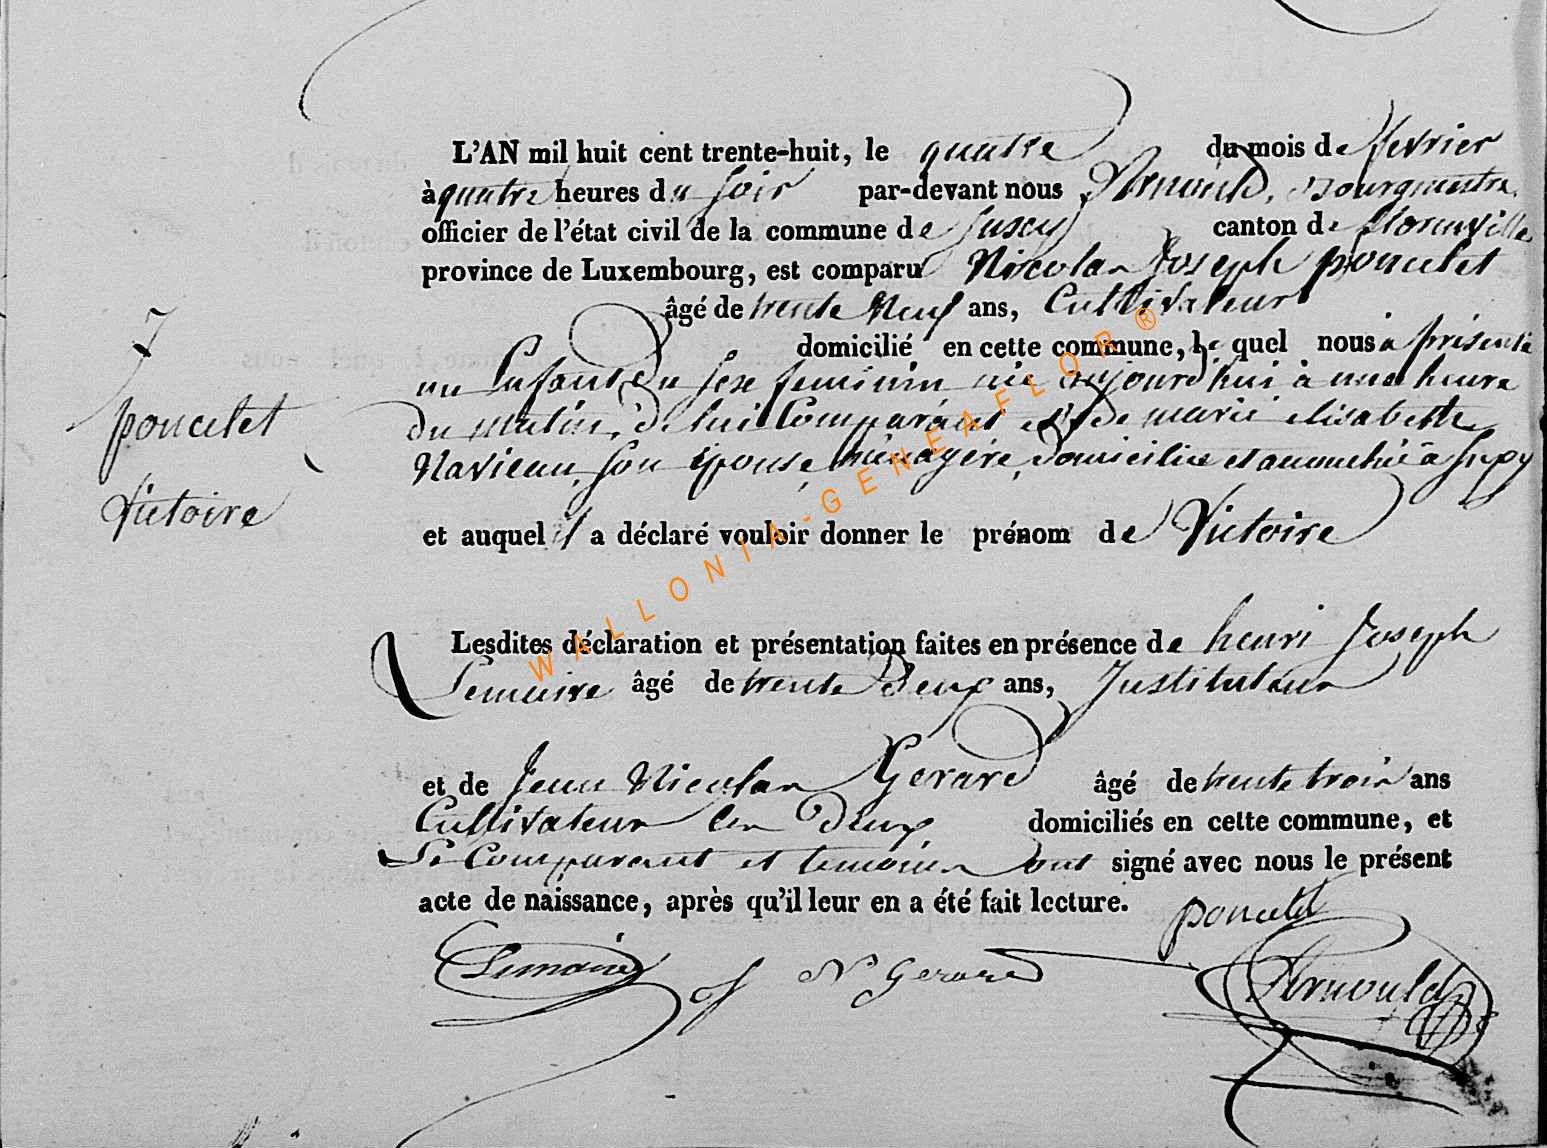 L'AN mil huit cent trente-huit, le quatre du mois de fevrier
à quatre heures du soir par-devant nous Arnould, Bourgmestre
officier de l'état civil de la commune de canton de florenville
province de Luxembourg, est comparu Nicolas Joseph poncelet
âgé de trente Neuf ans, Cultivateur
domicilié en cette commune, le quel nous a présenté
7
un Enfant du sexe feminin née aujourd'hui à une heure
poncelet
du matin, de lui Comparant et de marie elisabeth
Navieau, son épouse, ménagère, domiciliée et accouchée à
Victoire
et auquel il a déclaré vouloir donner le prénom de Victoire
Lesdites déclaration et présentation faites en présence de henri Joseph
Lemaire âgé de trente Deux ans, Instituteur
et de Jean Nicolas Gerard âgé de trente trois ans
Cultivateur les deux domiciliés en cette commune, et
Le Comparant et temoins ont signé avec nous le présent
acte de naissance, après qu'il leur en a été fait lecture.
poncelet
Lemaire J N Gerard Arnould
WALLONIA-GENEAFLOR ®